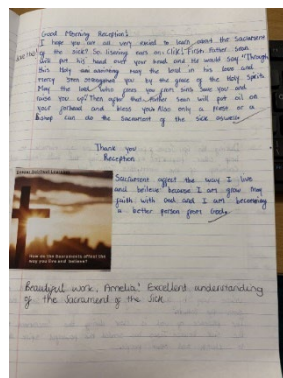 Good Morning Reception!
I hope you are all very excited to learn about the Sacrament
of the sick? So lisening ears on: Click! First Father Sean
will put his hand over your head and He would say "Through
this Holy anninting may the lord in his love and
Mercy by the grace of the Holy Spirit.
May the lord who frees you from sins save you and
raise you up." Then after that Father Sean will put oil on
your forhead and bless you. Also only a Priest or a
Bishop can do the Sacrament of the sick aswell
Thank you
Reception
Sacrament affect the way I live
and believe because I am grow my
faith with God and I am becoming
a better person from God.
How do the Sacraments affect the
way you live and believe?
Beautiful work, Amelia! Excellent understanding
of the Sacrament of the Sick.